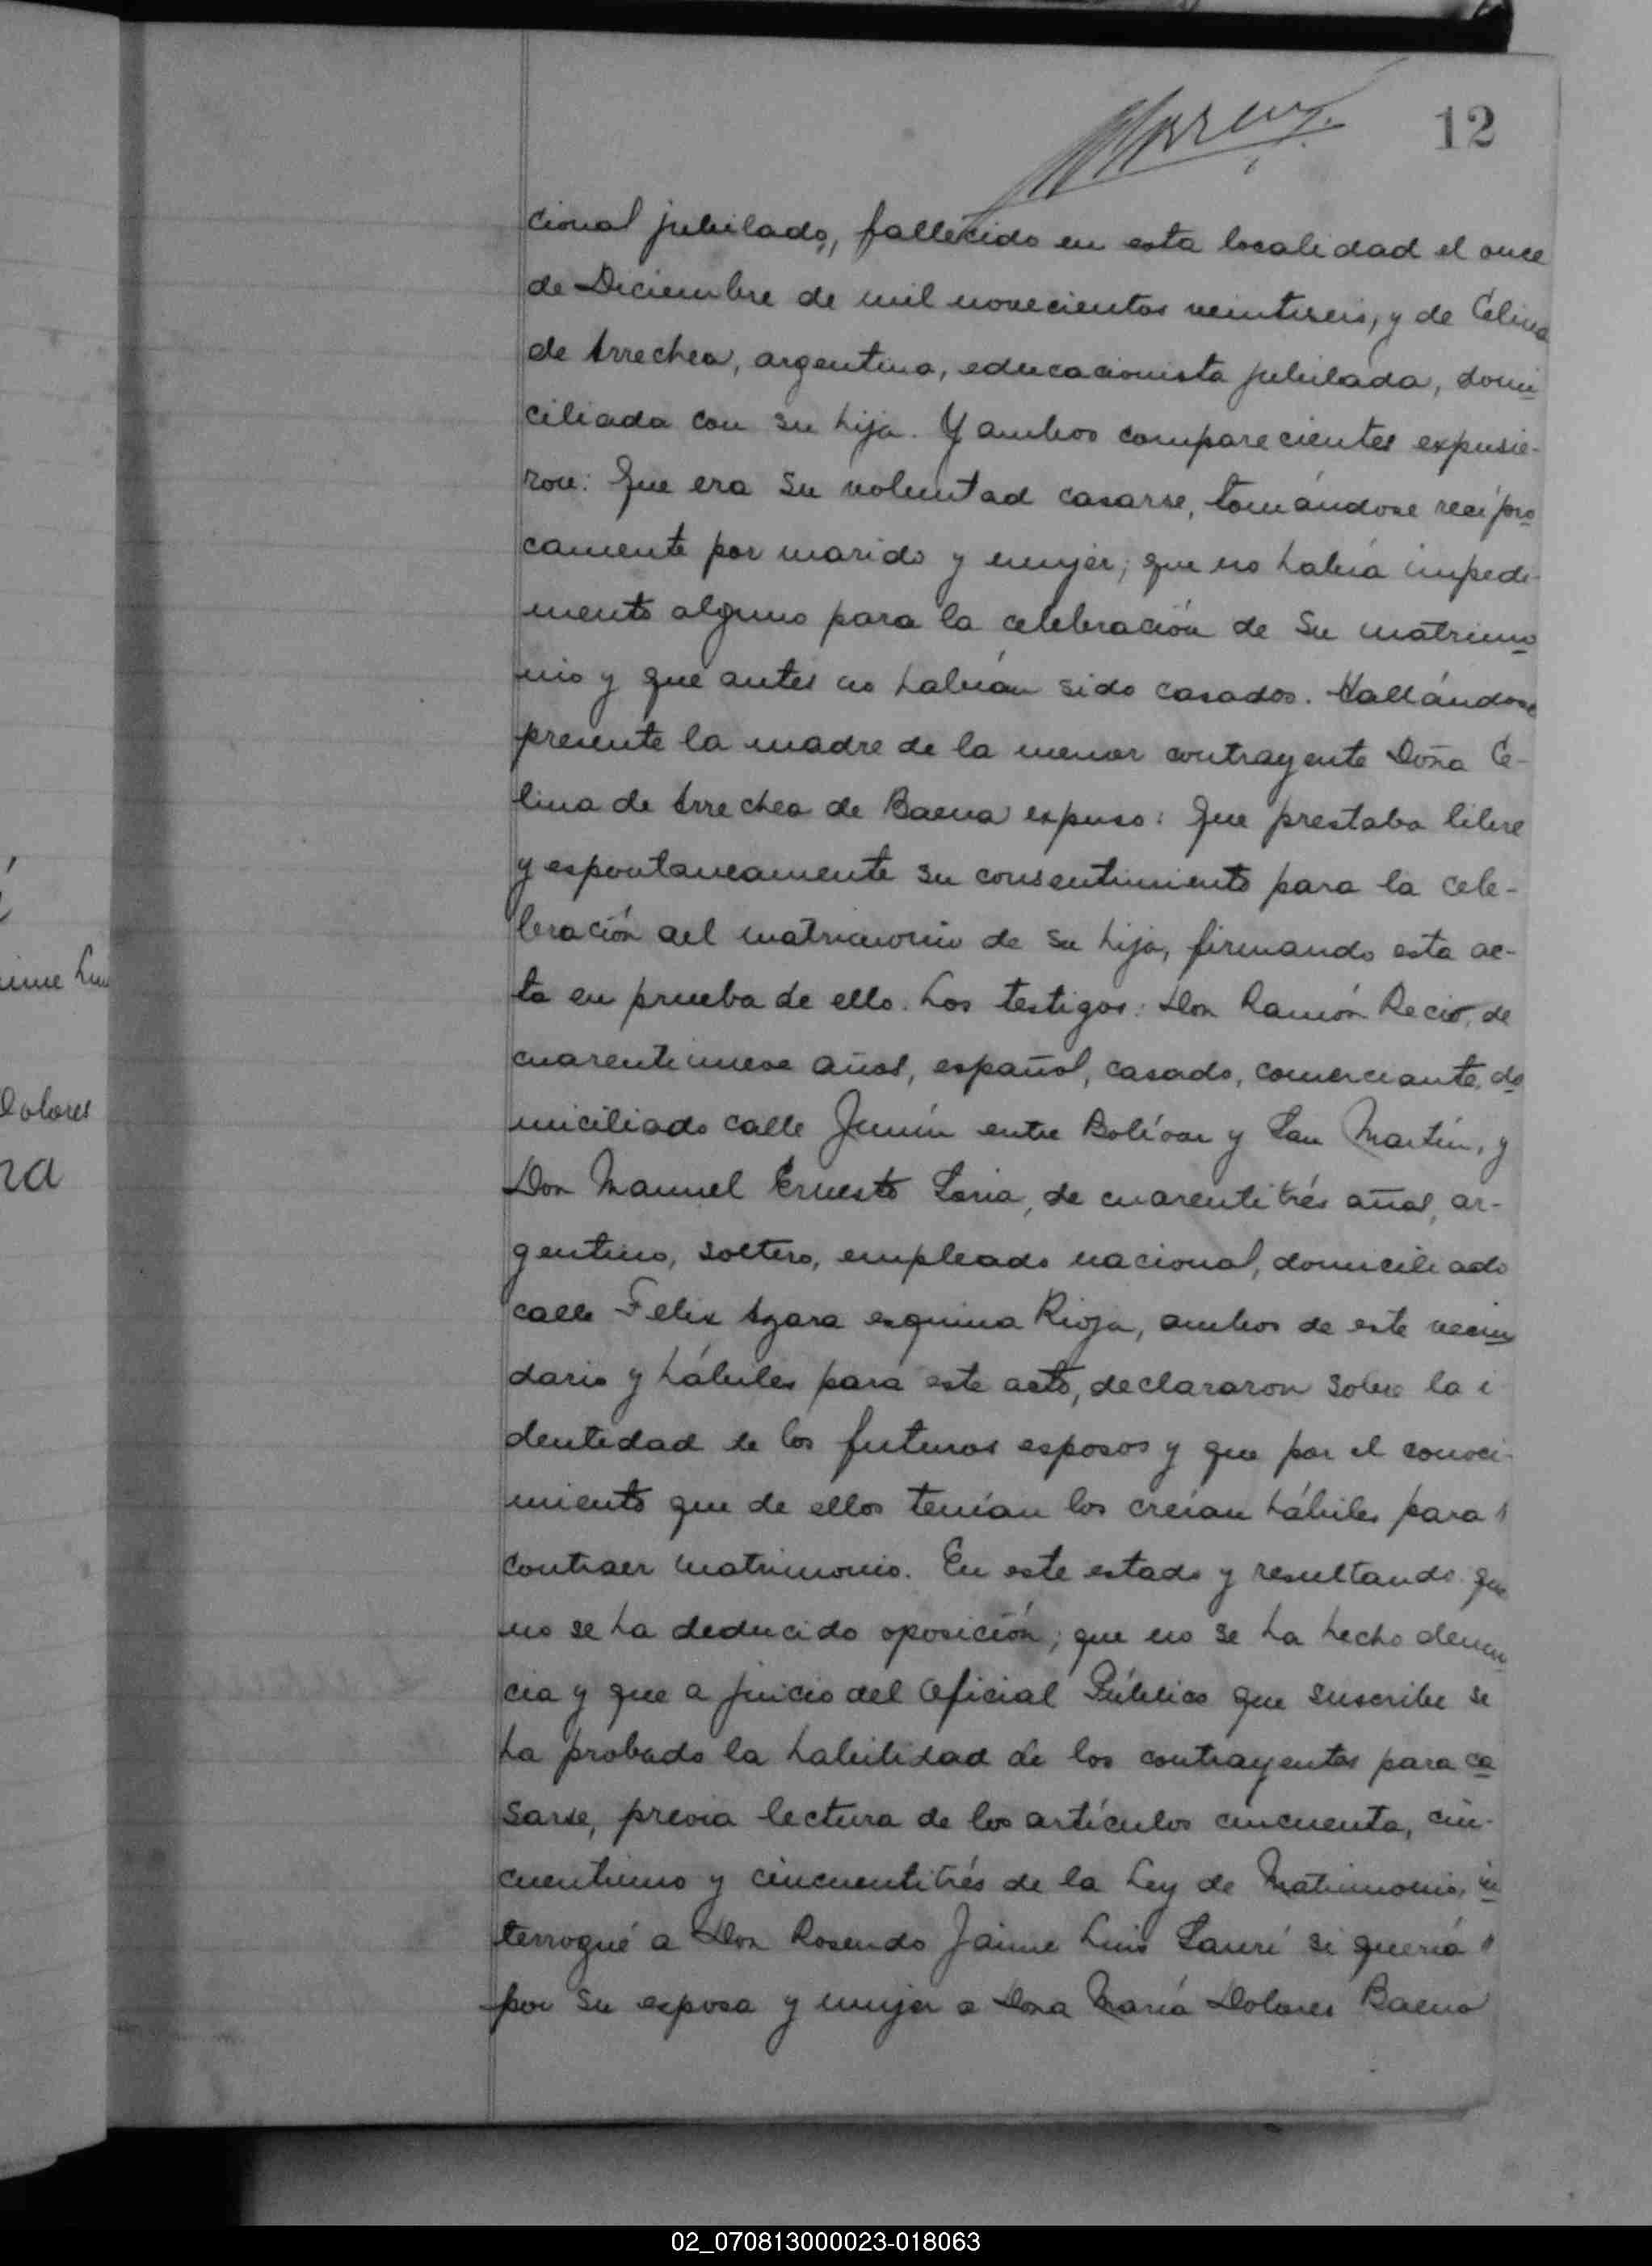 12
cional jubilado, fallecido en esta localidad el once
de Diciembre de mil novecientos veintiseis, y de Celina
de Arrechea, argentina, educacionista jubilada, domi
ciliada con su hija. Y ambos comparecientes expusie-
ron: Que era su voluntad casarse, tomándose recípro
camente por marido y mujer; que no había impedi-
mento alguno para la celebración de su matrimo
nio y que antes no habían sido casados. Hallándose
presente la madre de la menor contrayente Doña Ce-
lina de Arrechea de Baena expuso: Que prestaba libre
y espontaneamente su consentimiento para la cele-
bración del matrimonio de su hija, firmando esta ac-
ta en prueba de ello. Los testigos: Don Ramón Recio, de
cuarentinueve años, español, casado, comerciante, do
miciliado calle Junín entre Bolívar y San Martín, y
Don Manuel Ernesto Soria, de cuarentitrés años, ar-
gentino, soltero, empleado nacional, domiciliado
calle Felix Azara esquina Rioja, ambos de este vecin
dario y hábiles para este acto, declararon sobre la i
dentidad de los futuros esposos y que por el conoci-
miento que de ellos tenían los creían hábiles para
contraer matrimonio. En este estado y resultando que
no se ha deducido oposición; que no se ha hecho denun
cia y que a juicio del Oficial Público que suscribe se
ha probado la habilidad de los contrayentes para ca
sarse, previa lectura de los artículos cincuenta, cin-
cuentiuno y cincuentitrés de la Ley de Matrimonio, in
terrogué a Don Rosendo Jaime Luis Saurí si quería
por su esposa y mujer a Doña María Dolores Baena
Dolores
02_070813000023-018063